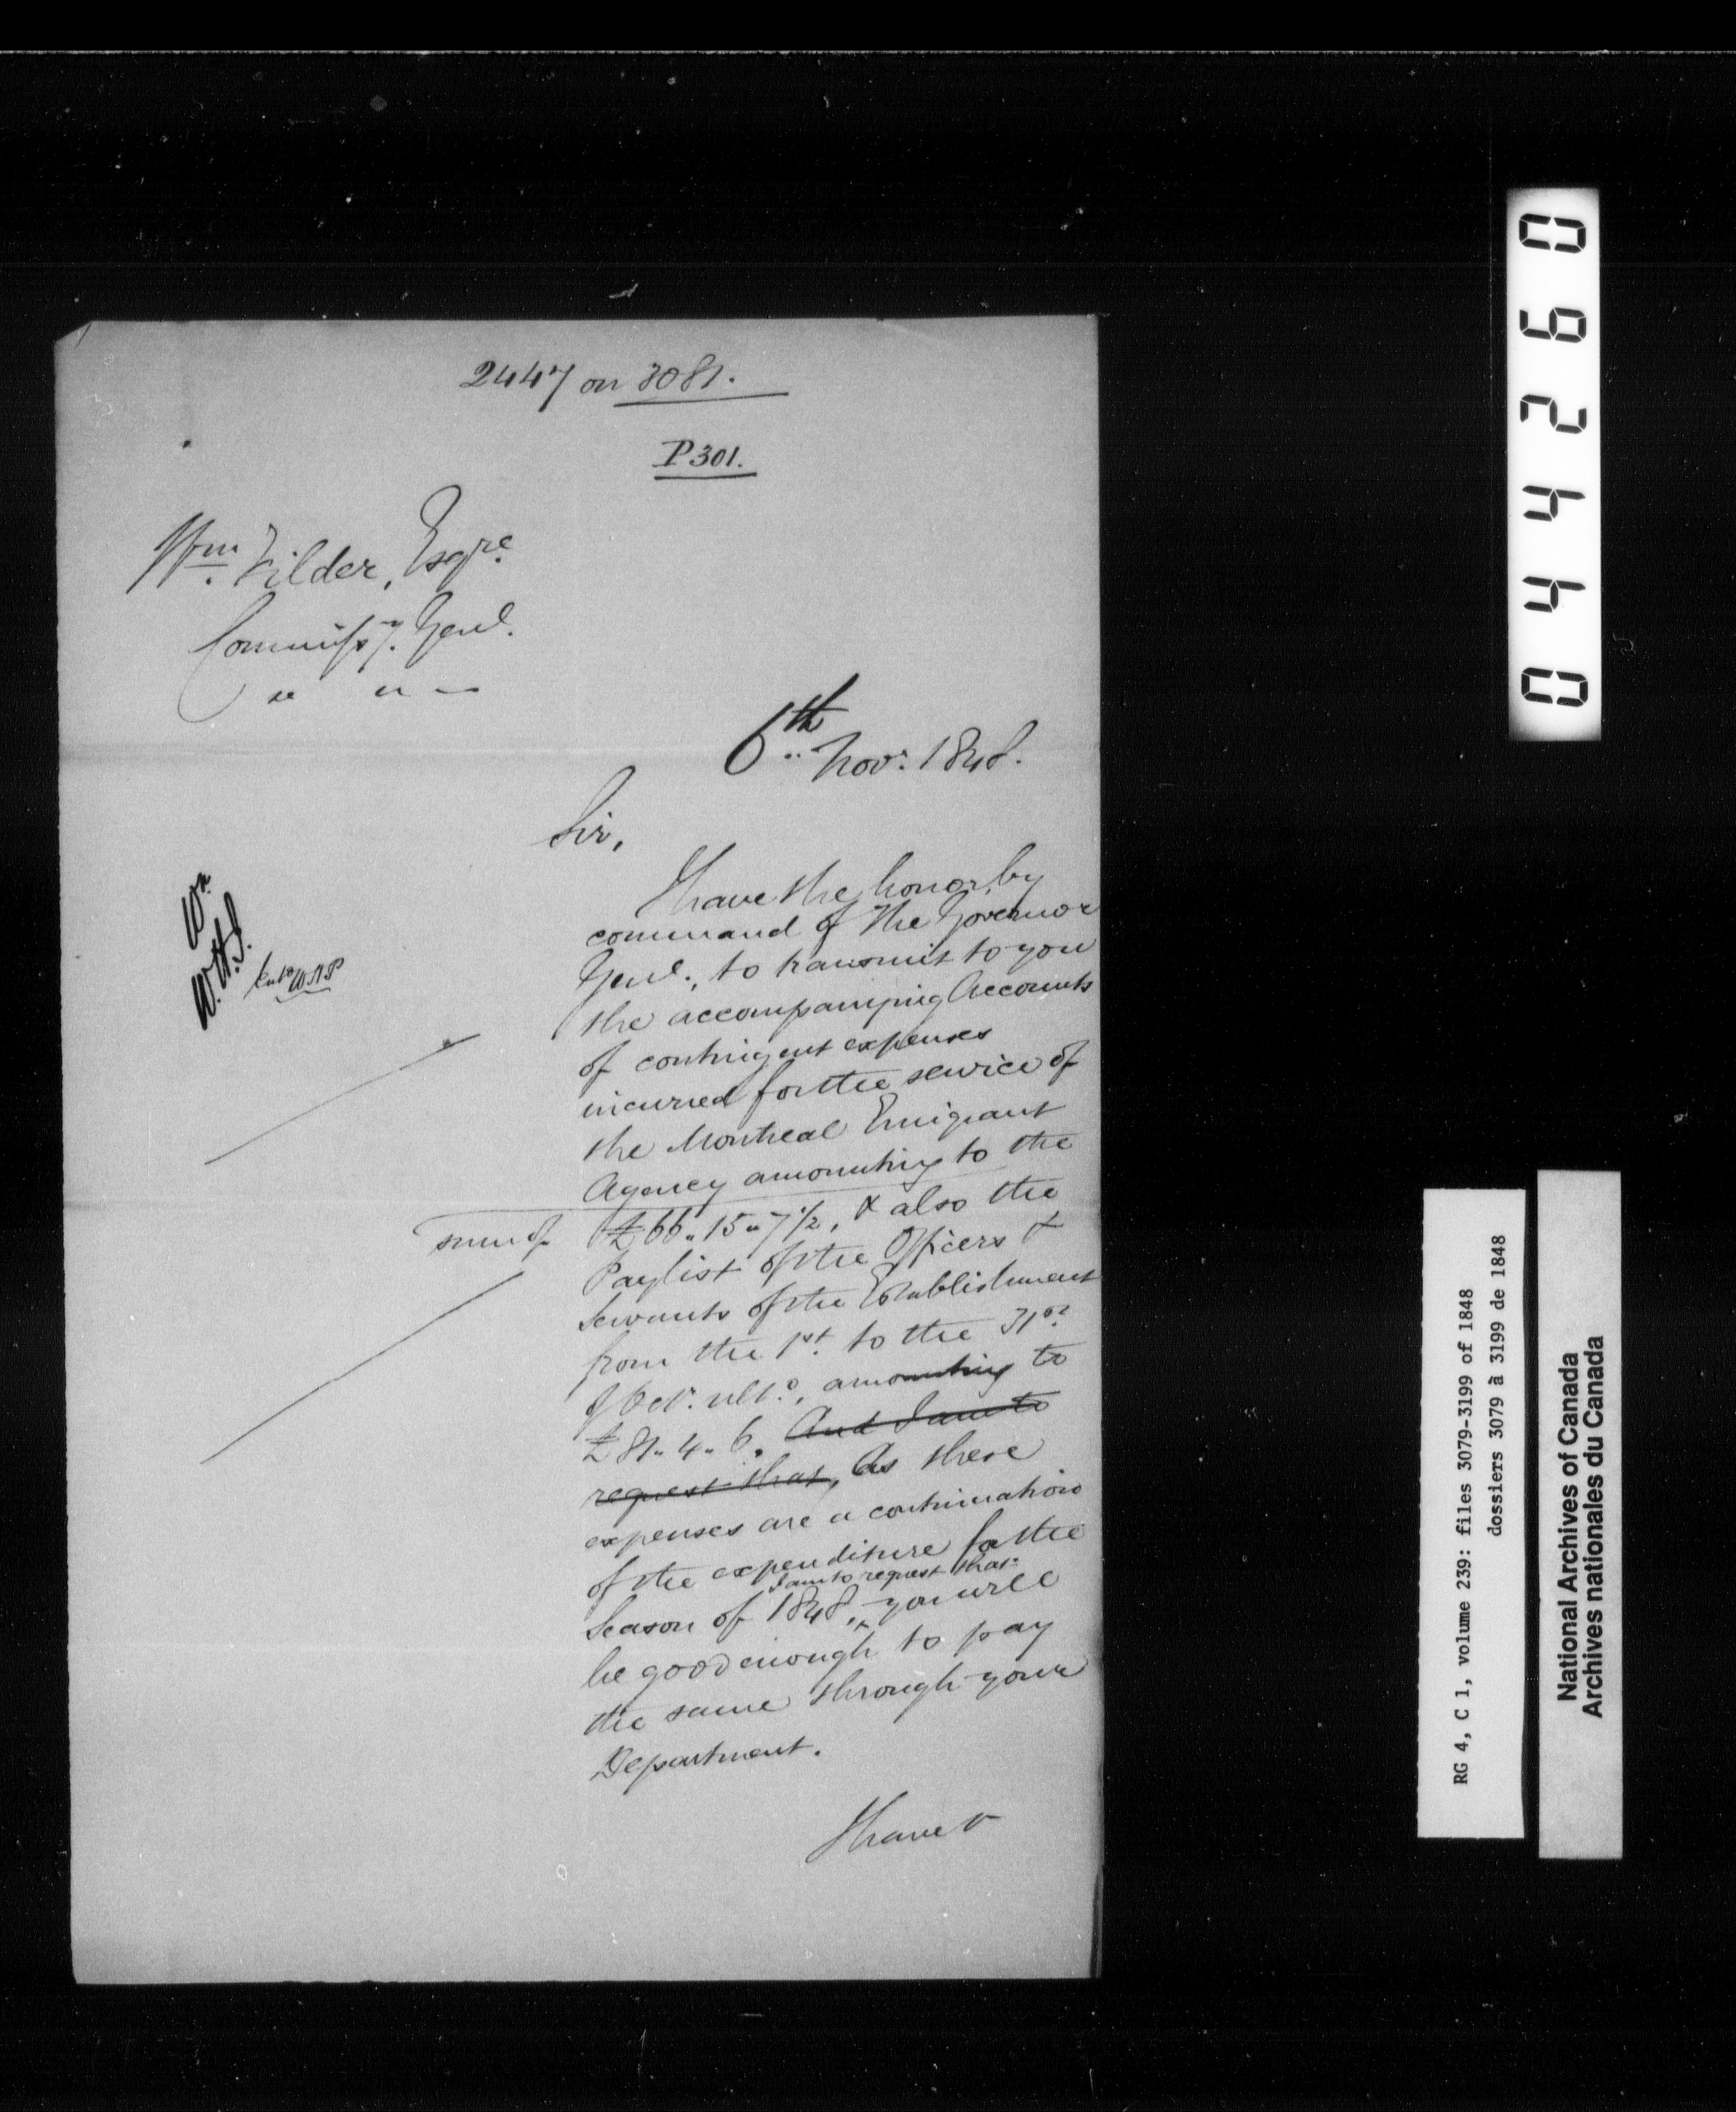 2447 on 3081.
P301.
Wm. Filder, Esqre.
Commissy. Genl.
6th Novr. 1848.
Sir,
I have the honor, by
command of the Governor
Genl., to transmit to you
the accompanying Accounts
of contingent expenses
incurred for the service of
the Montreal Emigrant
Agency amounting to the
sum of £66.. 15.. 7 1/2, & also the
Paylist of the Officers &
Servants of the Establishment
from the 1st. to the 31st.
of Octr. ulto., amounting to
£81.. 4.. 6. And I am to
request that, As these
expenses are a continuation
of the expenditure for the
I am to request that
Season of 1848, you will
be good enough to pay
the same through your
Department.
I have &
Wr.
W.H.J.
044260
RG 4, C 1, volume 239: files 3079-3199 of 1848
dossiers 3079 à 3199 de 1848
National Archives of Canada
Archives nationales du Canada